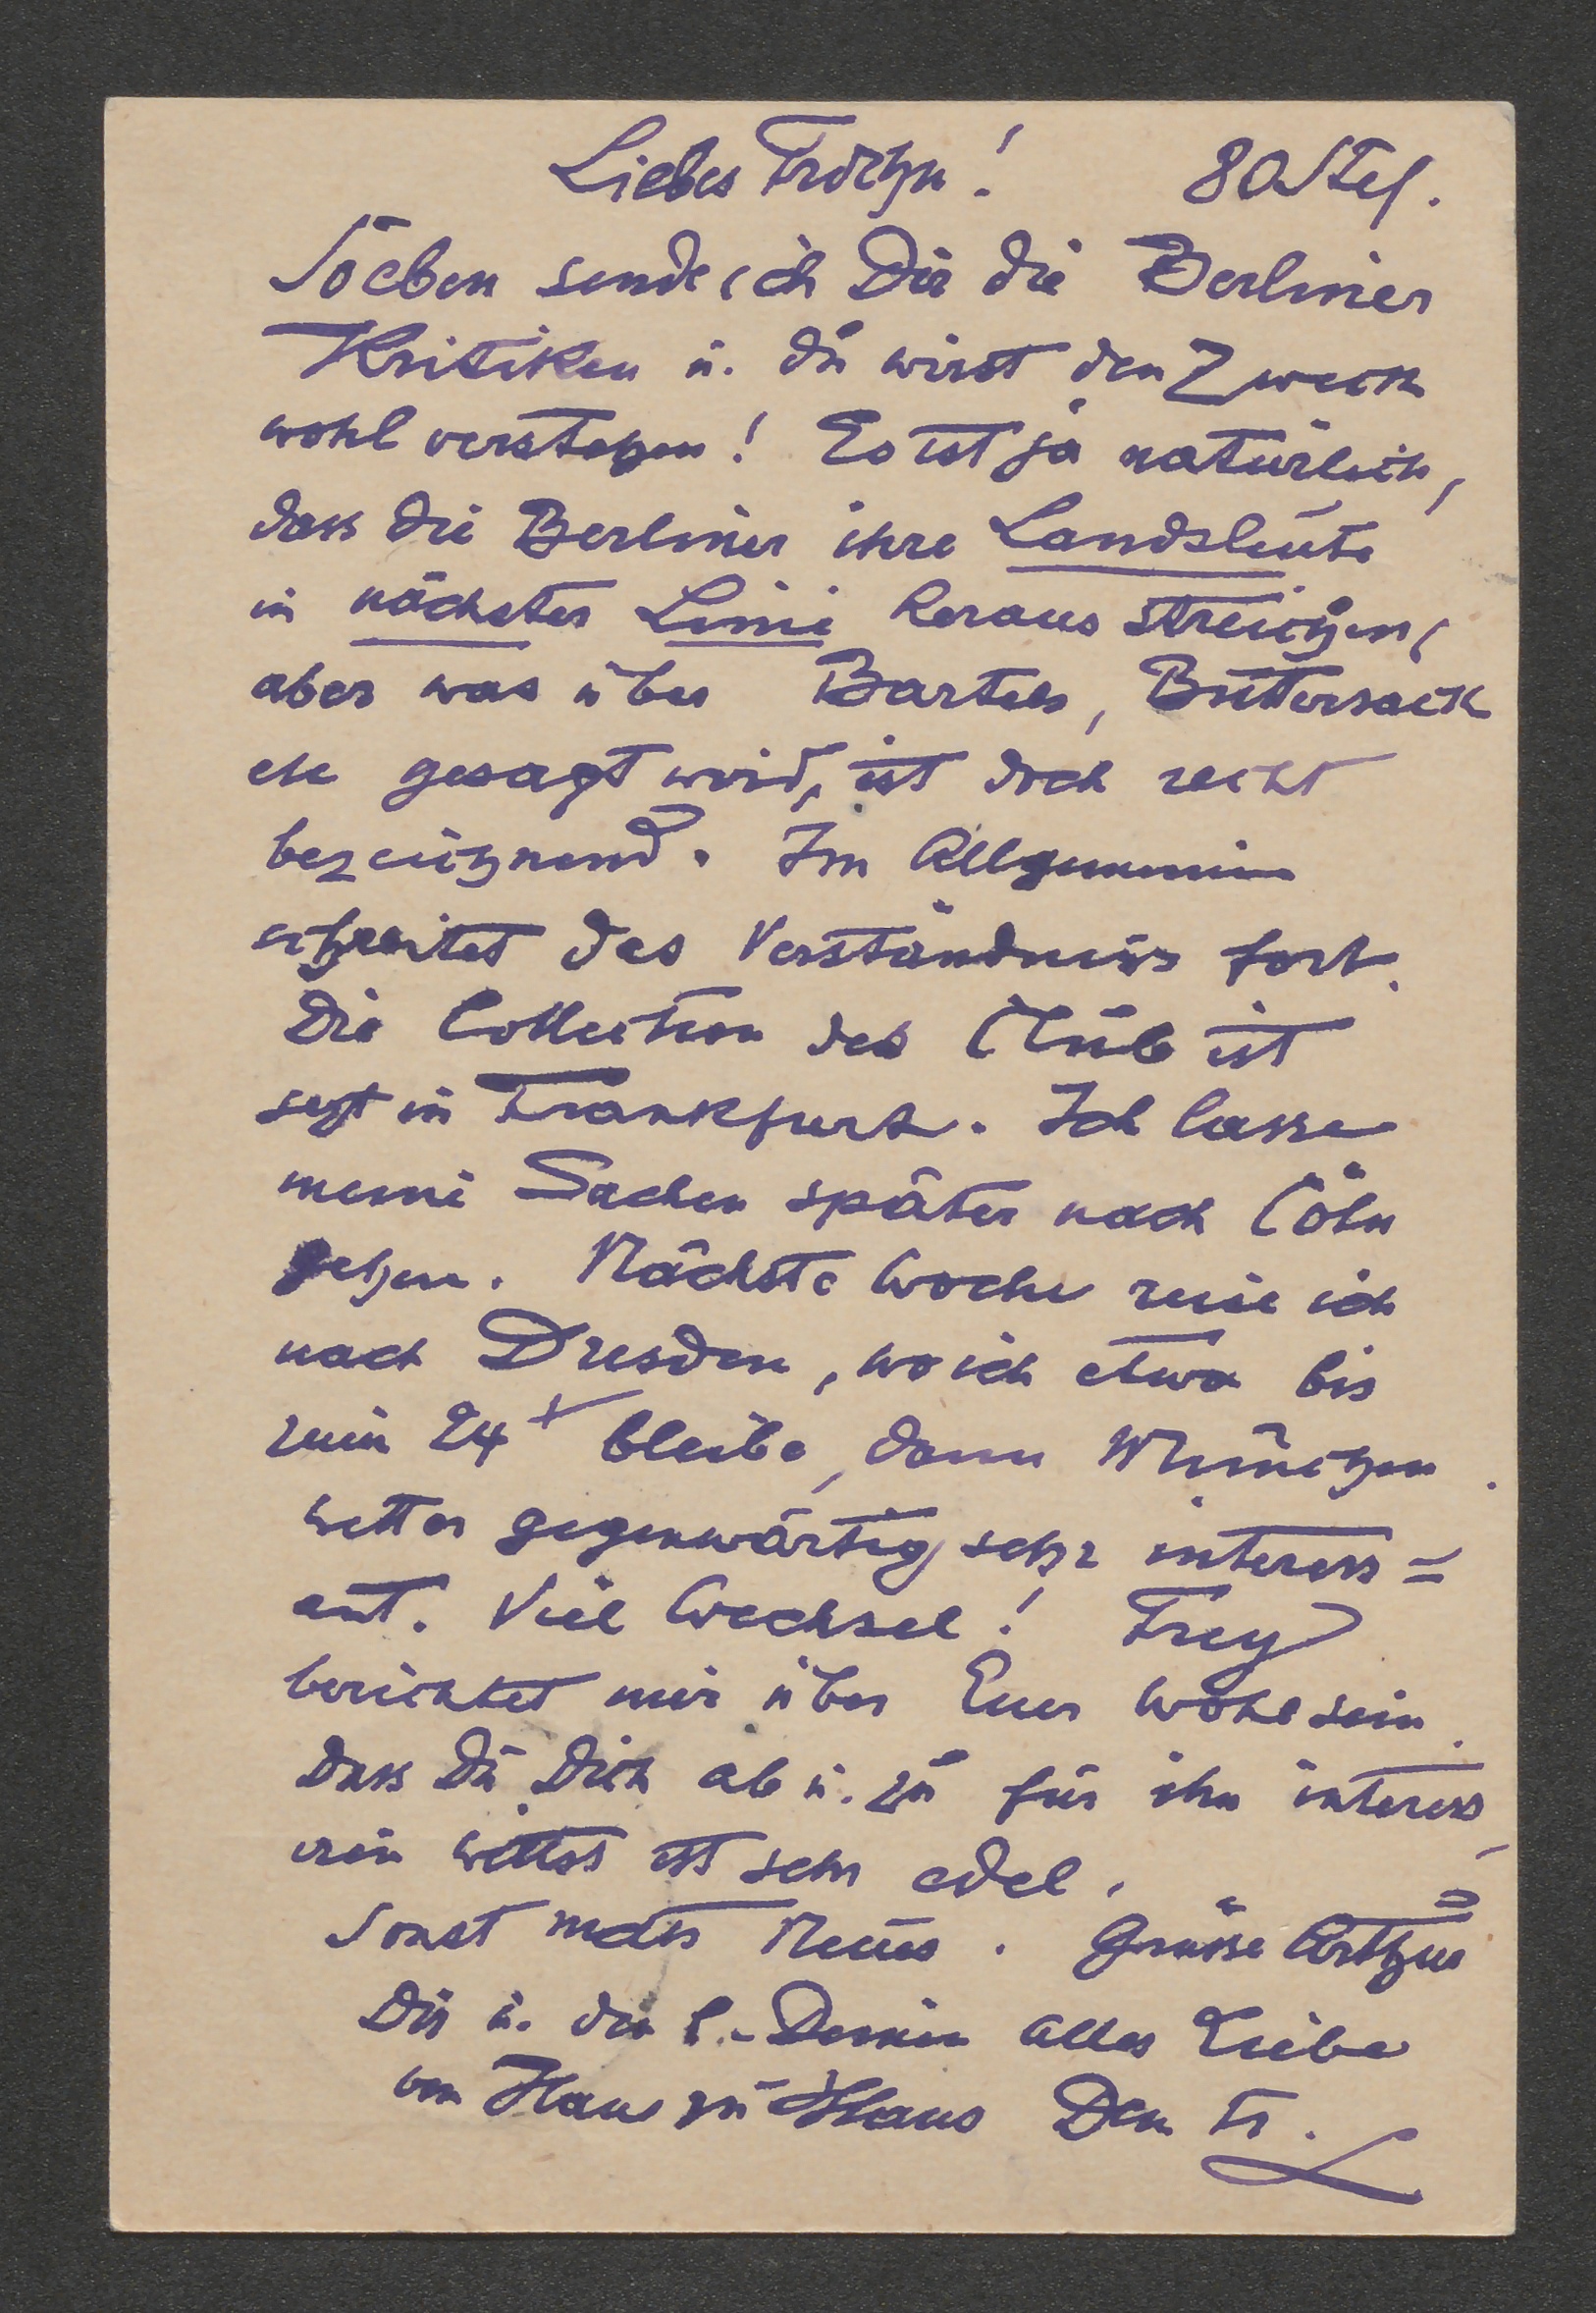 Liebes Fritzen!
Soeben sende ich Dir die Berliner
Kritiken u. du wirst den Zweck
wohl verstehen! Es ist ja natürlich,
dass die Berliner ihre Landsleute
in nächster Linie heraus streichen,
aber was über Bartels, Buttersack
etc gesagt wird, ist doch recht
bezeichnend. Im Allgemeinen
schreitet das Verständniss fort.
Die Collection des Club ist
jetzt in Frankfurt. Ich lasse
meine Sachen später nach Cöln
gehen. Nächste Woche reise ich
nach Dresden, wo ich etwa bis
zum 24t bleibe, dann München.
Wetter gegenwärtig sehr interess=
ant. Viel Wechsel! Frey
berichtet mir über Euer Wohlsein.
Dass Du Dich ab u. zu für ihn interess
iren willst ist sehr edel.
Sonst nichts Neues. Grüsse Arthur
Dir u. der l. Deinen alles Liebe
von Haus zu Haus Dein Fr.